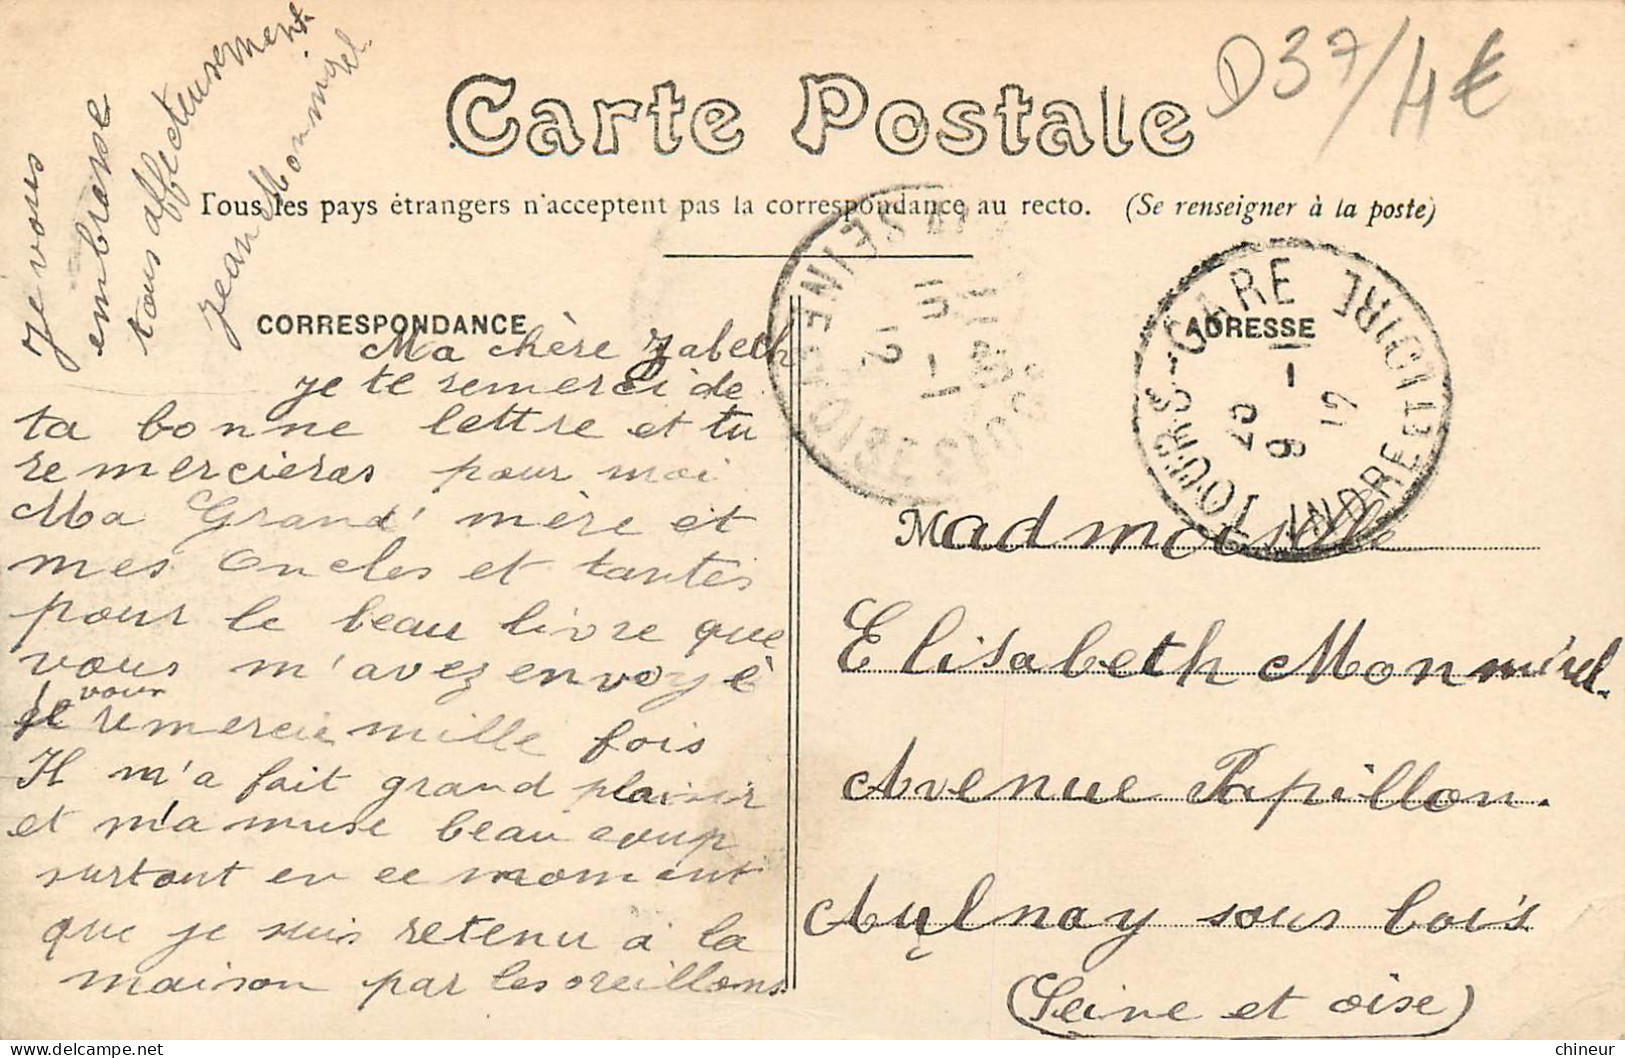 D37/4€
Carte Postale
Tous les pays étrangers n'acceptent pas la correspondance au recto. (Se renseigner à la poste)
CORRESPONDANCE
ADRESSE
TOURS-GARE
INDRE ET LOIRE
Ma chère Zabeth
je te remerci de
ta bonne lettre et tu
remercieras pour moi
Ma Grand' mère et
mes oncles et tantes
pour le beau livre que
vous m'avez envoyé
je vous remercie mille fois
Il m'a fait grand plaisir
et m'a muse beaucoup
surtout en ce moment
que je suis retenu à la
maison par les oreillons
Je vous
embrasse
tous affectueusement
Jean Monmirel
Madmoiselle
Elisabeth Monmirel.
Avenue Papillon.
Aulnay sous bois
(Seine et oise)
chineur